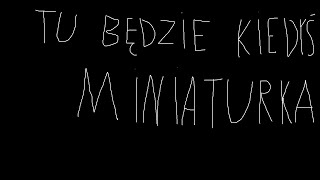 TU BĘDZIE KIEDYŚ
MINIATURKA